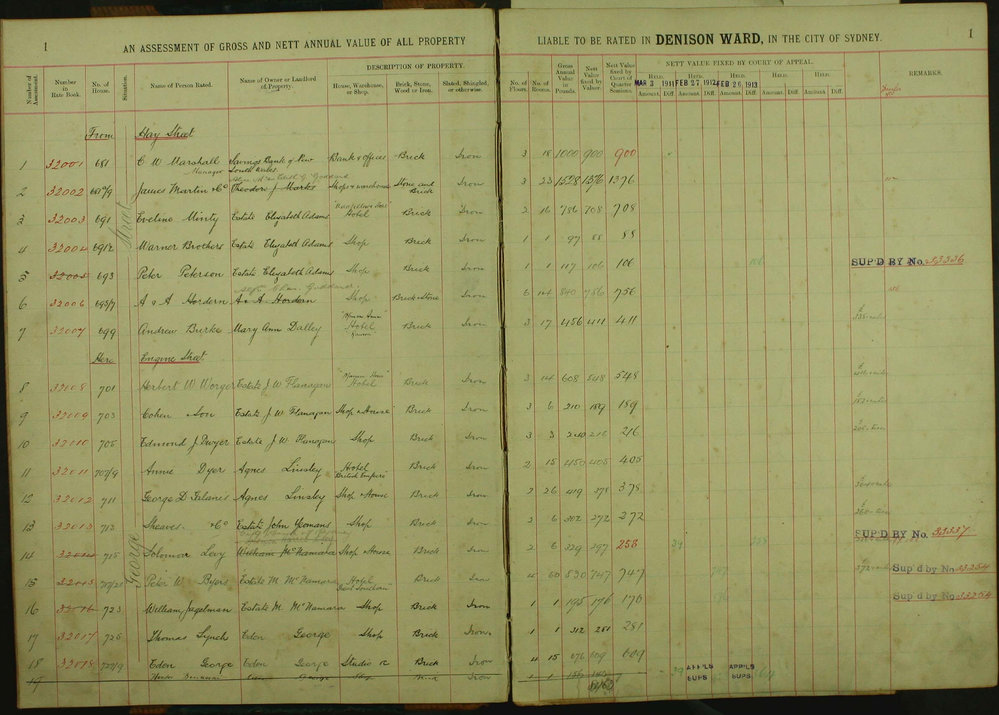 1
AN ASSESSMENT OF GROSS AND NETT ANNUAL VALUE OF ALL PROPERTY
LIABLE TO BE RATED IN DENISON WARD, IN THE CITY OF SYDNEY.
1
DESCRIPTION OF PROPERTY.
NETT VALUE FIXED BY COURT OF APPEAL.
Number of Assessment.
Number in Rate Book.
No. of House.
Situation.
Name of Person Rated.
Name of Owner or Landlord of Property.
House, Warehouse, or Shop.
Brick, Stone, Wood or Iron.
Slated, Shingled, or otherwise.
No. of Floors.
No. of Rooms.
Gross Annual Value in Pounds.
Nett Value fixed by Valuer.
Nett Value fixed by Court of Quarter Sessions.
HELD. MAR 3 1911
HELD. FEB 27 1912
HELD. FEB 26 1913
HELD.
HELD.
Amount. Diff. Amount. Diff. Amount. Diff. Amount. Diff. Amount. Diff.
REMARKS.
From Hay Street
1 32001 681 C W Marshall Manager Savings Bank of New South Wales Bank & Offices Brick Iron 3 18 1000 900 900
2 32002 James Martin & Co Theodore J Marks Shops & warehouse Stone and Brick Iron 3 23 1528 1376 1376
3 32003 691 Eveline Minty Estate Elizabeth Adams Hotel Brick Iron 2 16 786 708 708
4 32004 691½ Warner Brothers Estate Elizabeth Adams Shop Brick Iron 1 1 97 88 88
5 32005 693 Peter Peterson Estate Elizabeth Adams Shop Brick Iron 1 1 117 106 106 SUP'D BY No. 33336
6 32006 695/7 A & A Hordern A & A Hordern Shop Brick & Stone Iron 6 14 840 756 756
7 32007 699 Andrew Burke Mary Ann Dalley Hotel Brick Iron 3 17 456 411 411
Here Engine Street
8 32008 701 Herbert W Worger Estate J W Flanagan Hotel Brick Iron 3 14 608 548 548
9 32009 703 Cohen & Son Estate J. W Flanagan Shop & House Brick Iron 3 6 210 189 189
10 32010 705 Edmond J Dwyer Estate J. W Flanagan Shop Brick Iron 3 3 240 216 216
11 32011 707/9 Annie Dyer Agnes Linsley Hotel British Empire Brick Iron 2 15 450 405 405
12 32012 711 George D Galanis Agnes Linsley Shop & House Brick Iron 2 26 419 378 378
13 32013 713 Sheaves & Co Estate John Yeomans Shop Brick Iron 2 6 302 272 272
14 715 Solomon Levy William McNamara Shop & House Brick Iron 2 6 329 297 258 39 SUP'D BY No. 33337
15 32015 Peter W Byers Estate M. McNamara Hotel Brick Iron 4 60 830 747 747 Sup'd by No 33254
16 723 William Jagelman Estate M. McNamara Shop Brick Iron 1 1 195 176 176 Sup'd by No 33254
17 32017 725 Thomas Lynch Eden George Shop Brick Iron 1 1 312 281 281
18 32018 727/9 Eden George Eden George Studio &c Brick Iron 4 15 676 609 609
19 Eden George Shop Brick Iron 1 1
39 APP'LS SUPS APP'LS SUPS
George Street